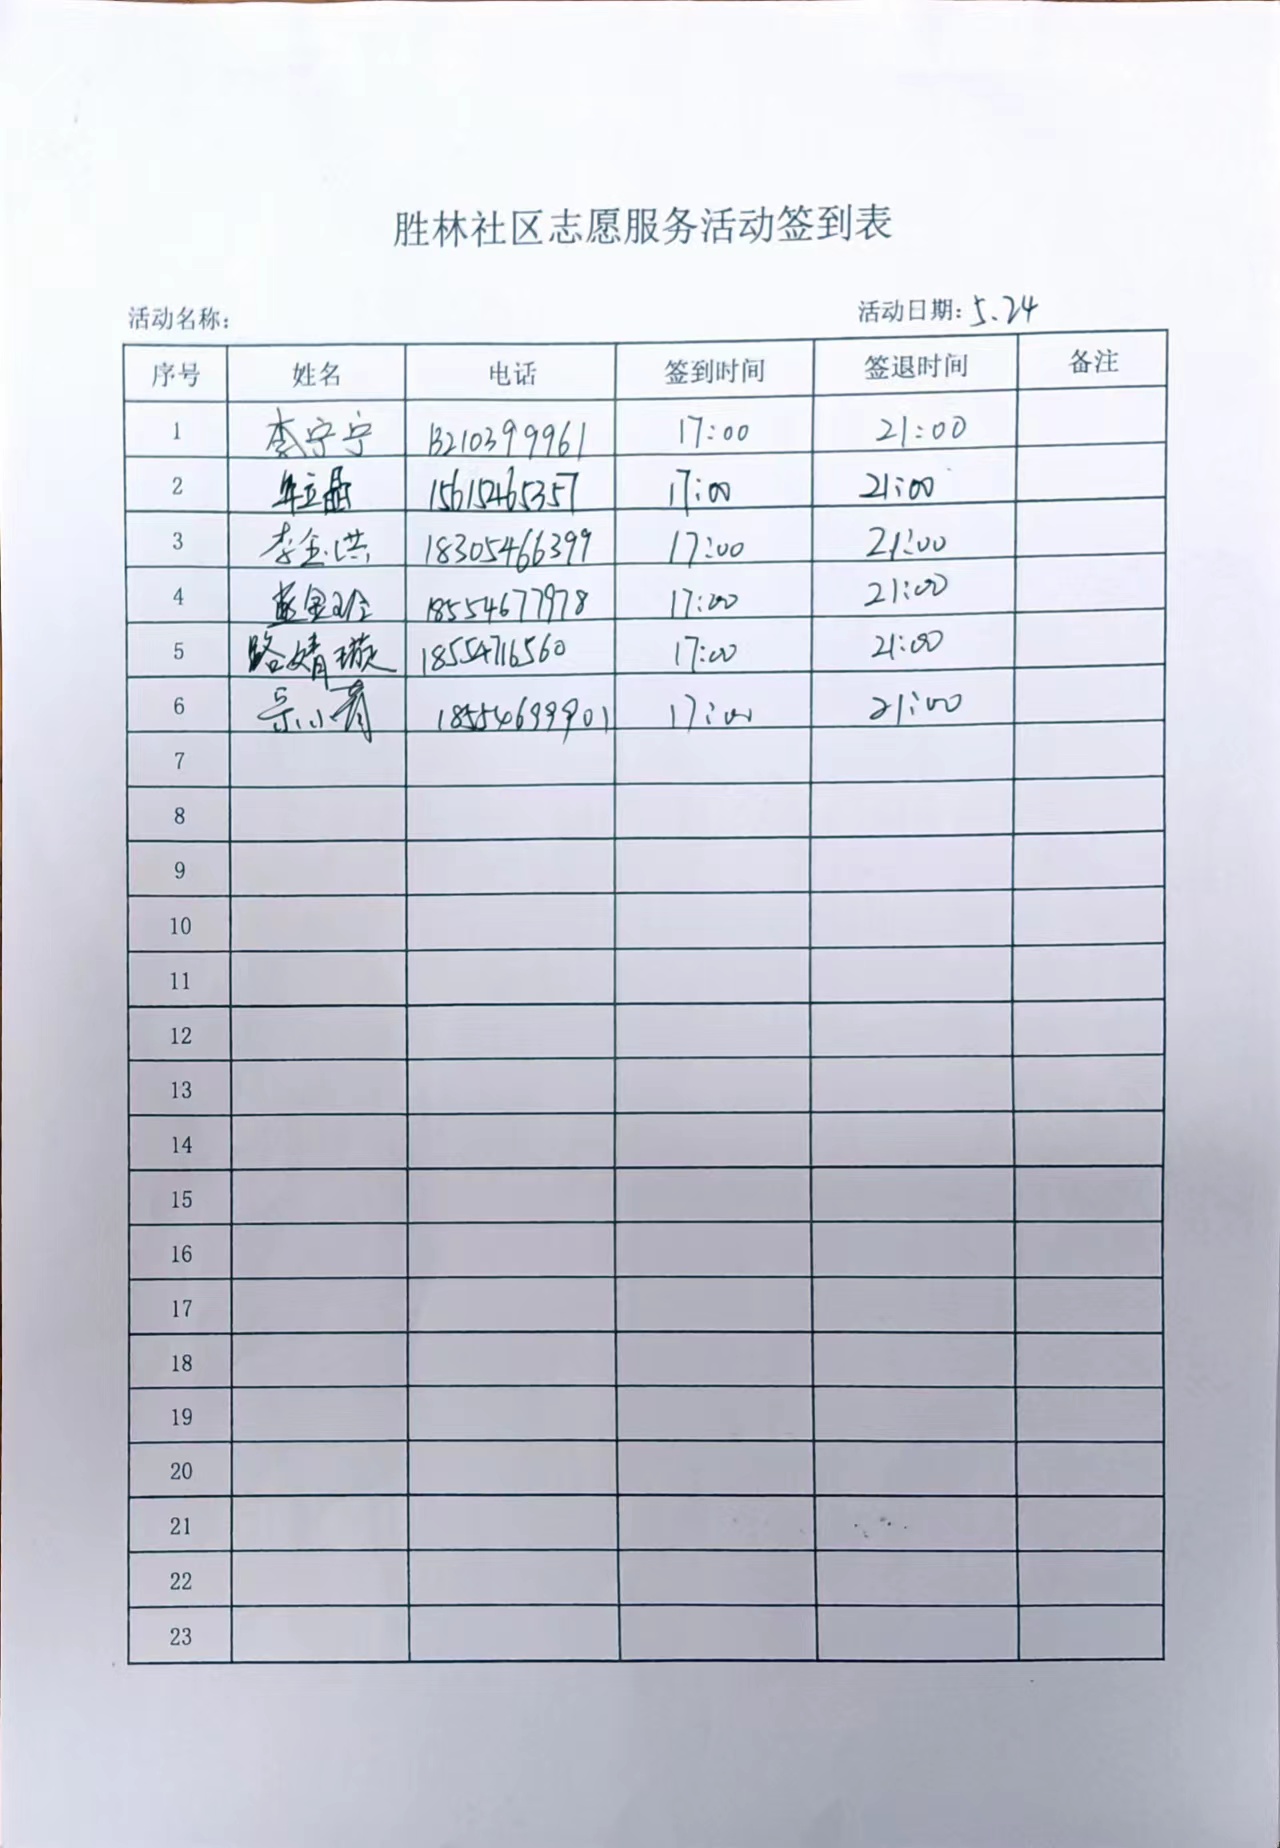 胜林社区志愿服务活动签到表
活动名称: 活动日期: 5.24
序号 姓名 电话 签到时间 签退时间 备注
1 李宁宁 13210399961 17:00 21:00
2 15615465357 17:00 21:00
3 李金洪 18305466399 17:00 21:00
4 18554677978 17:00 21:00
5 路婧璇 18554716560 17:00 21:00
6 宗小青 18554699901 17:00 21:00
7
8
9
10
11
12
13
14
15
16
17
18
19
20
21
22
23